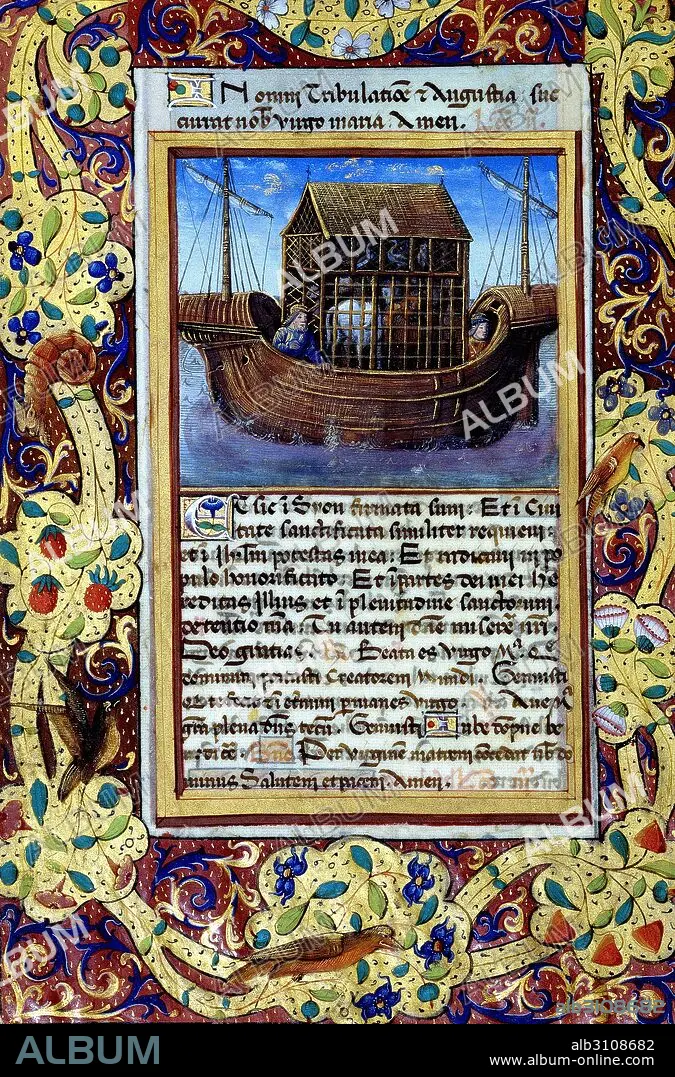 In omni Tribulatiōe ⁊ Augustia suc
curat nob̄ virgo maria. Amen.
Et sic ī Syon firmata sum: Et ī Civi
tate sanctificata similiter requieui
et ī Ihrlm̄ potestas mea: Et radicaui in po
pulo honorificato: Et ī partes dei mei he
reditas Illius et ī plenitudine sanctorum
detentio mea Tu autem dn̄e miserere nr̄i
Deo gratias Beata es virgo Mª. Q̄
dominum portasti Creatorem Mundi: Genuisti
te fecit et īeternum permanes virgo. Ave Mª
grā plena dn̄s tecū. Genuisti Iube dopne be
Per virginem matrem cōcedat nob̄ do
minus Salutem et pacem. Amen.
ALBUM
alb3108682
www.album-online.com